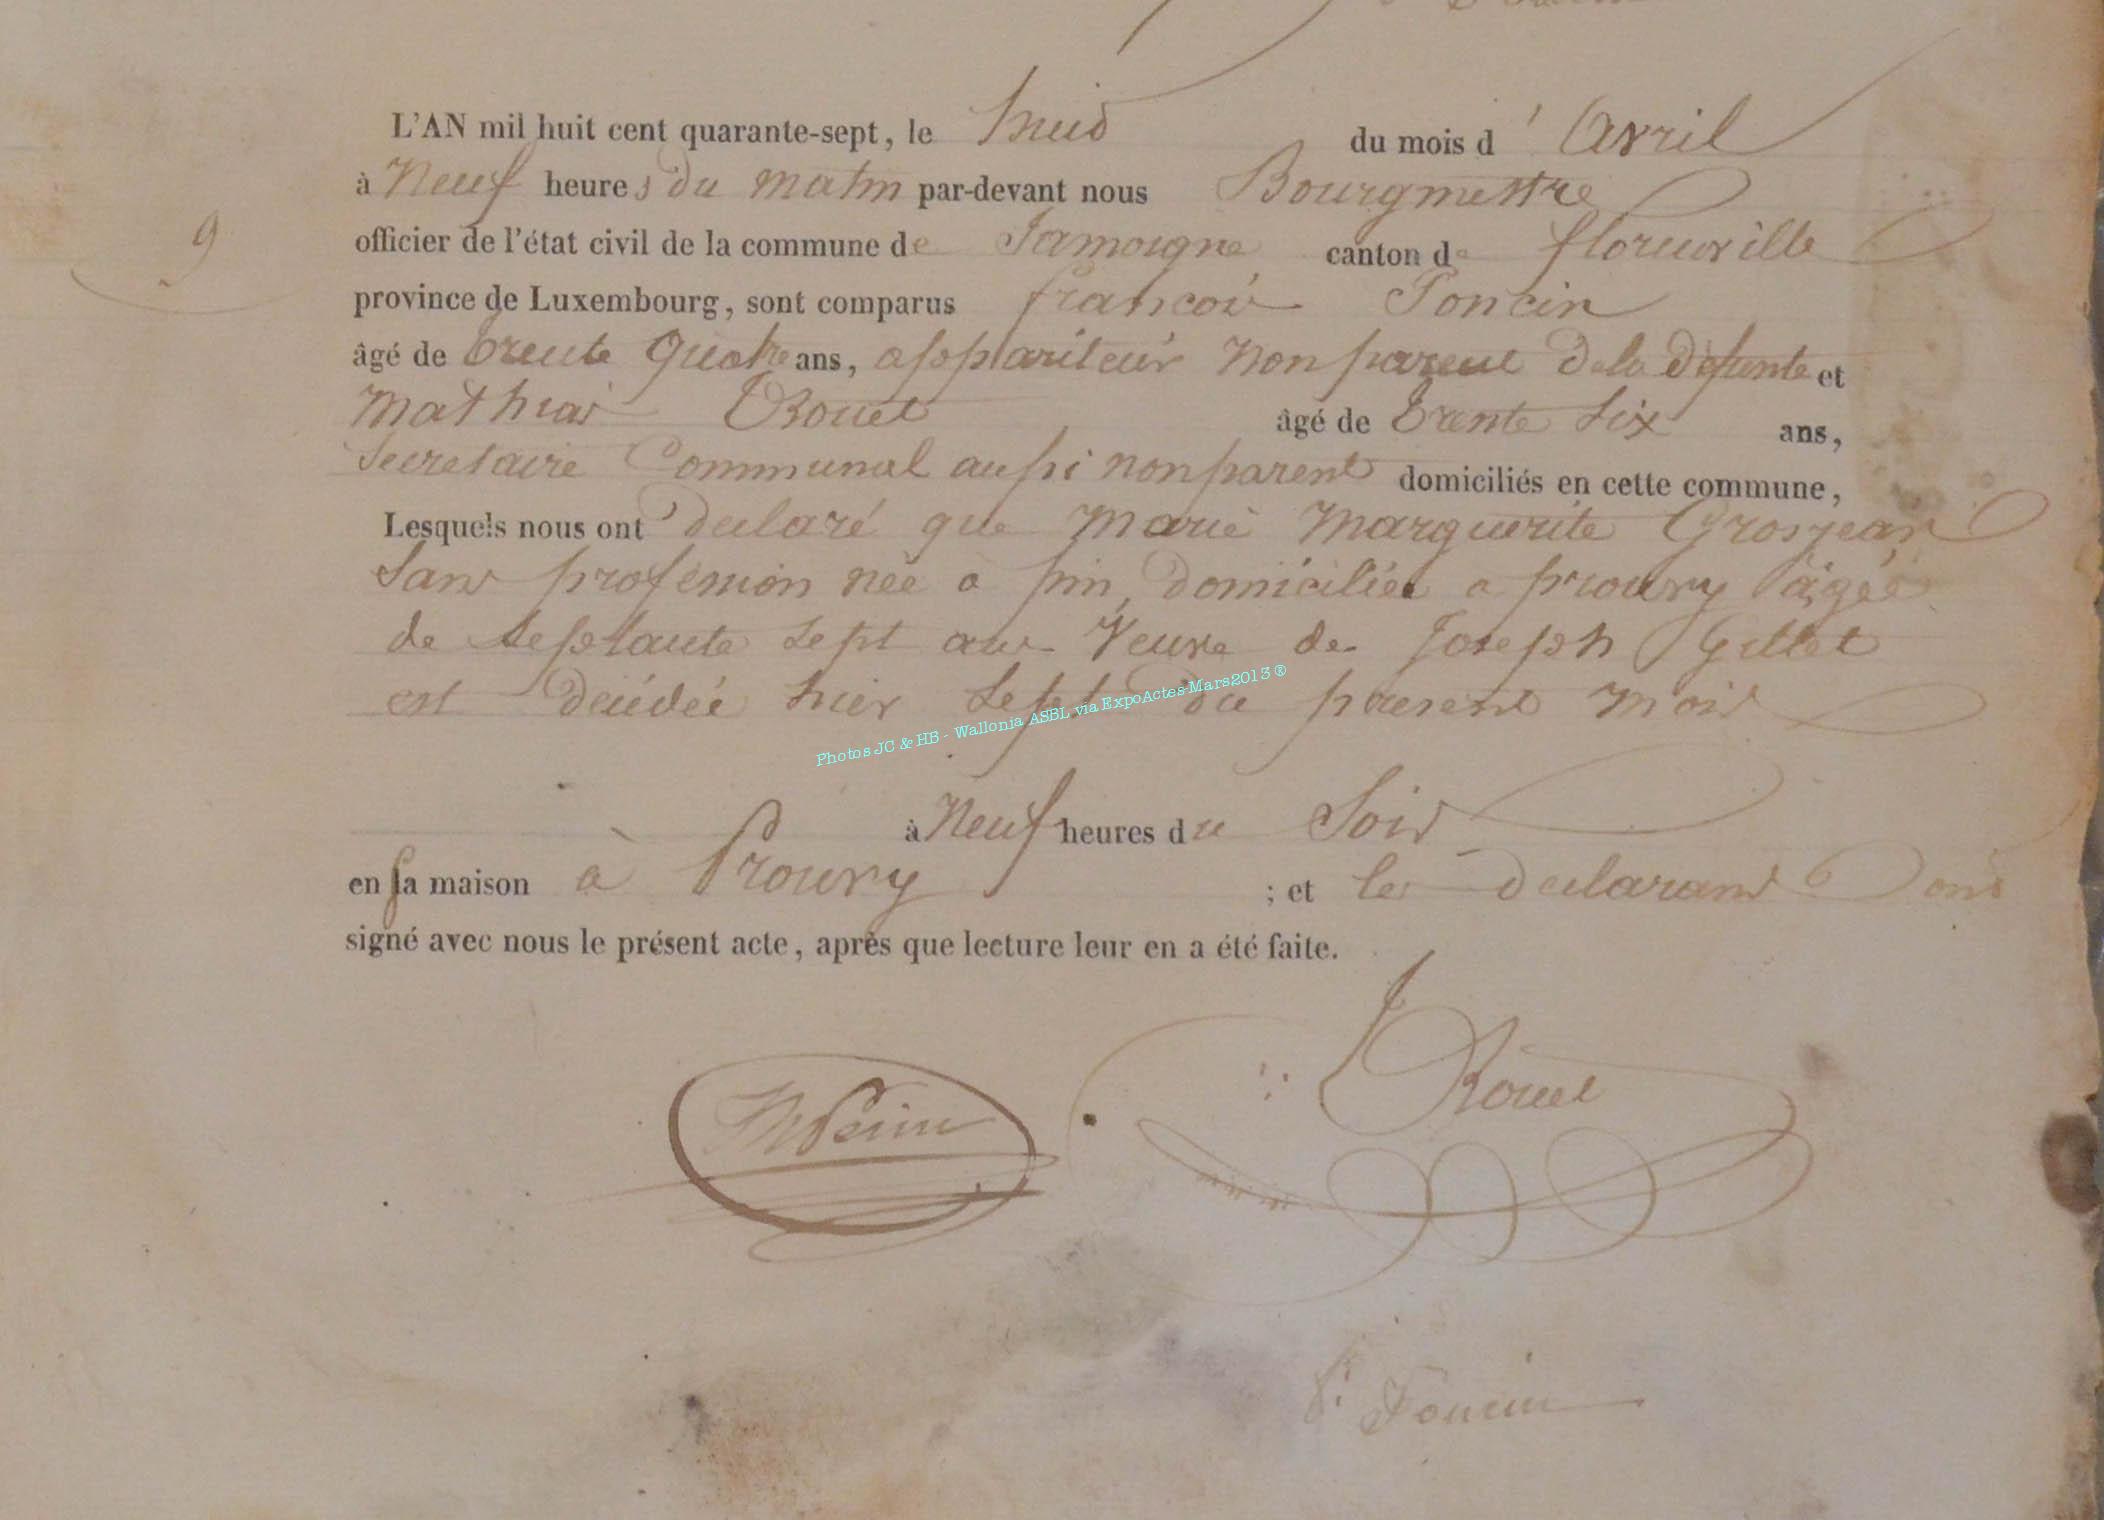 L'AN mil huit cent quarante-sept, le huid du mois d'Avril
à Neuf heures du matin par-devant nous Bourgmestre
9
officier de l'état civil de la commune de Jamoigne canton de florenville
province de Luxembourg, sont comparus francois Poncin
âgé de trente quatre ans, appariteur non parent de la defunte et
Mathias Rouet âgé de trente six ans,
Secretaire Communal aussi non parent domiciliés en cette commune,
Lesquels nous ont declaré que Marie Marguerite Grosjean
Sans profession née à pin, domiciliée a prouvy âgée
de septante sept ans Veuve de Joseph Gillet
est décédée hier sept du present mois
Photos JC & HB - Wallonia ASBL via ExpoActes-Mars2013 ®
à Neuf heures du Soir
en sa maison à Prouvy ; et les declarans ont
signé avec nous le présent acte, après que lecture leur en a été faite.
Rouet
f. Poncin